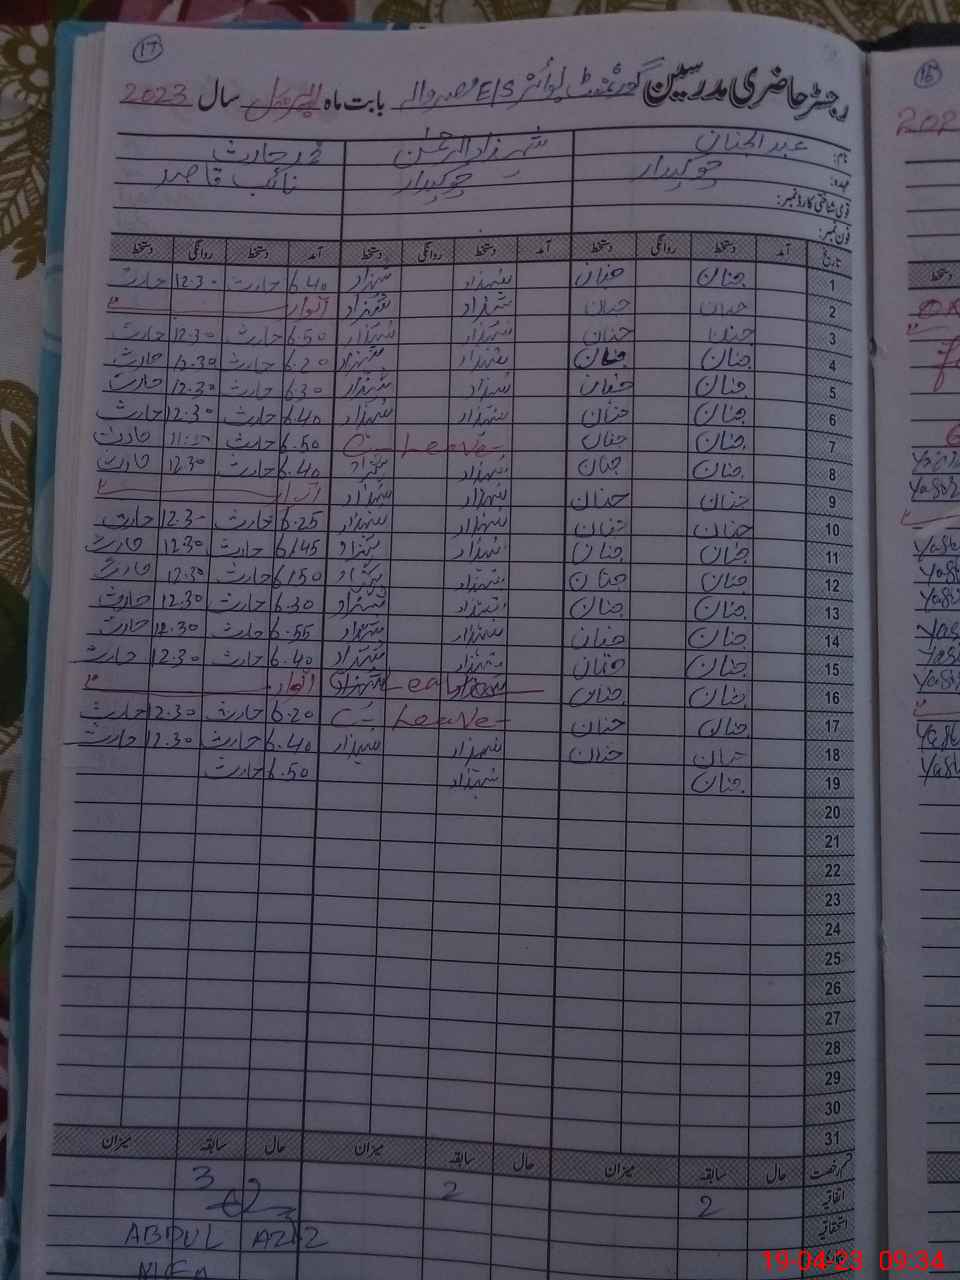 17
رجسٹر حاضری مدرسین گورنمنٹ بوائز E/S بابت ماہ اپریل سال 2023
نام: عبدالحنان شہزاد الرحمن محمد حارث
عہدہ: چوکیدار چوکیدار نائب قاصد
قومی شناختی کارڈ نمبر:
فون نمبر:
تاریخ آمد دستخط روانگی دستخط آمد دستخط روانگی دستخط آمد دستخط روانگی دستخط
1 حنان حنان شہزاد شہزاد 6.40 حارث 12.3- حارث
2 حنان حنان شہزاد شہزاد اتوار
3 حنان حنان شہزاد شہزاد 6.50 حارث 12.30 حارث
4 حنان حنان شہزاد شہزاد 6.20 حارث حارث
5 حنان حنان شہزاد شہزاد 6.30 حارث 12.30 حارث
6 حنان حنان شہزاد شہزاد 6.40 حارث 12.30 حارث
7 حنان حنان C- Leave- 6.50 حارث حارث
8 حنان حنان شہزاد شہزاد 6.40 حارث 12.30 حارث
9 حنان حنان شہزاد شہزاد اتوار
10 حنان حنان شہزاد شہزاد 6.25 حارث 12.3- حارث
11 حنان حنان شہزاد شہزاد 6/45 حارث 12.30 حارث
12 حنان حنان شہزاد شہزاد 6/50 حارث 12.30 حارث
13 حنان حنان شہزاد شہزاد 6.30 حارث 12.30 حارث
14 حنان حنان شہزاد شہزاد 6.55 حارث 12.30 حارث
15 حنان حنان شہزاد شہزاد 6.40 حارث 12.30 حارث
16 حنان حنان شہزاد شہزاد اتوار
17 حنان حنان C- Leave- 6.20 حارث 12.30 حارث
18 حنان حنان شہزاد شہزاد 6.40 حارث 12.30 حارث
19 حنان شہزاد 6.50 حارث
20
21
22
23
24
25
26
27
28
29
30
31
قسم رخصت حال سابقہ میزان حال سابقہ میزان حال سابقہ میزان
اتفاقیہ 2 2 3
استحقاقیہ
ABDUL AZIZ
16
202
دستخط
19-04-23 09:34